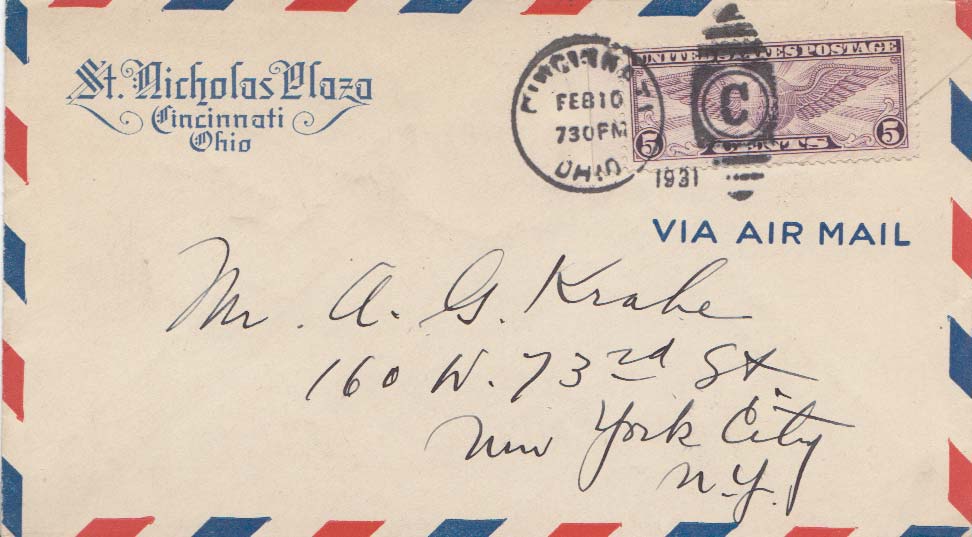 St. Nicholas Plaza
Cincinnati
Ohio
CINCINNATI
FEB 10
730 PM
OHIO
1931
UNITED STATES POSTAGE
C
5 CENTS 5
VIA AIR MAIL
Mr. A. G. Krahe
160 W. 73rd St.
New York City
N.Y.